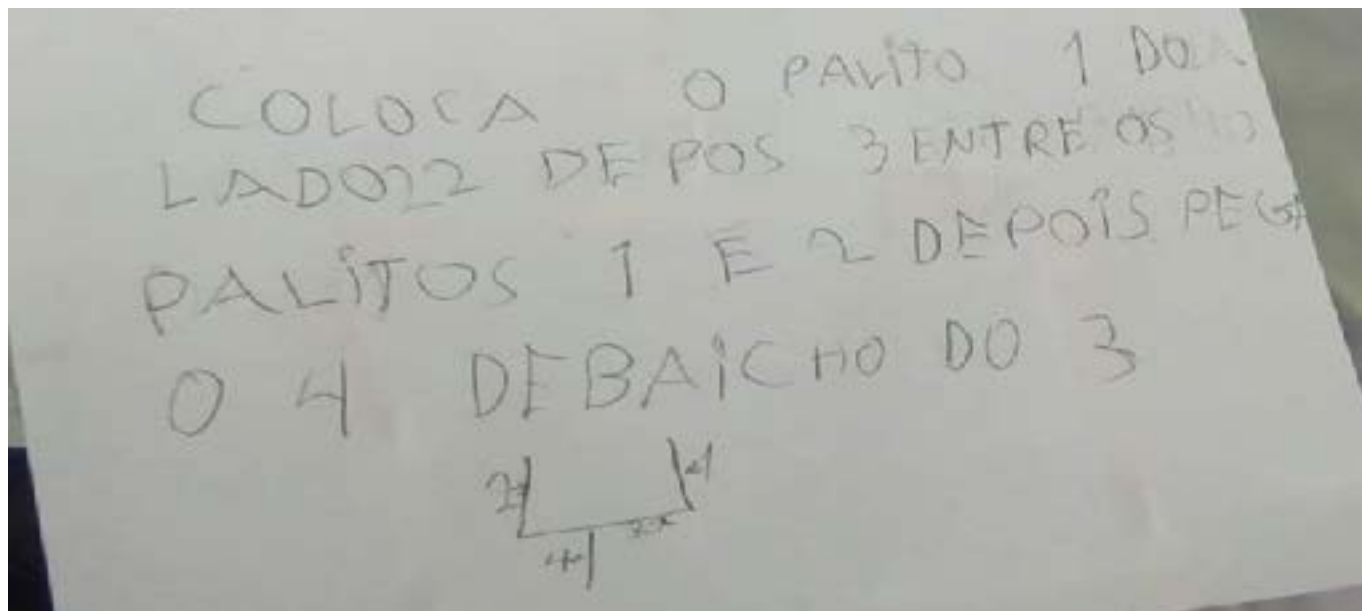 COLOCA O PALITO 1 DO
LADO 2 DEPOS 3 ENTRE OS
PALITOS 1 E 2 DEPOIS PEGA
O 4 DEBAICHO DO 3
2 1
3
4